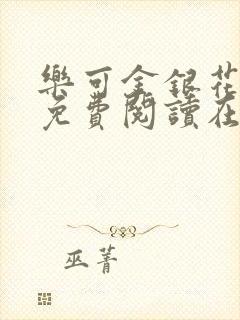 樂可金銀花
免費閱讀在
巫菁